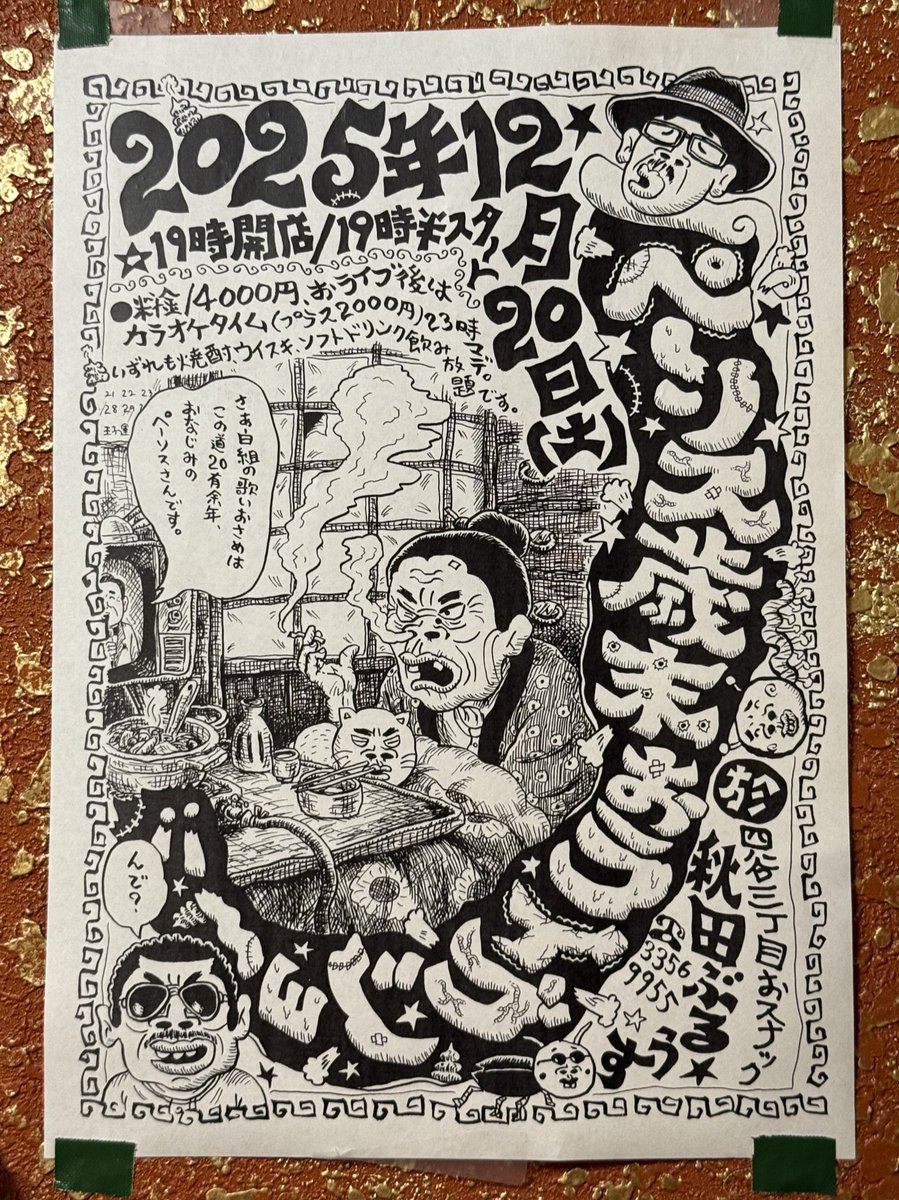 2025年12月20日(土)
☆19時開店/19時半スタート
●料金/4000円、おライブ後は
カラオケタイム(プラス2000円)23時マデ。
いずれも焼酎、ウイスキ、ソフトドリンク飲み放題です。
ペーソス歳末おコタツショー
21 22 23
28 29
さあ白組の歌いおさめは
この道20有余年、
おなじみの
ペーソスさんです。
んで?
於 四谷三丁目おスナック
秋田ぶるうす
☎3356
9955